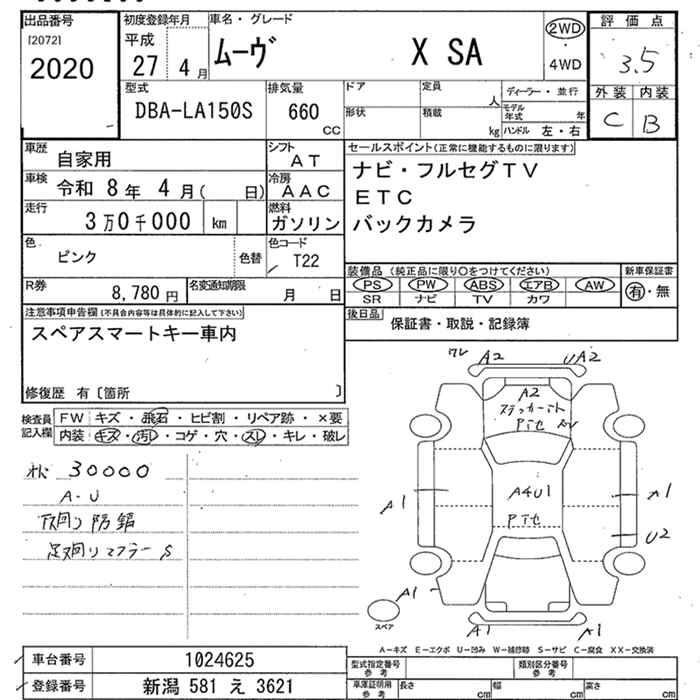 出品番号
[2072]
2020
初度登録年月
平成
27 4月
車名・グレード
ムーヴ X SA
2WD
・
4WD
評価点
3.5
外装 内装
C B
型式
DBA-LA150S
排気量
660
CC
ドア
定員
人
形状
積載
kg
ディーラー・並行
モデル年式 年
ハンドル 左・右
車歴
自家用
シフト
AT
車検
令和 8年 4月( 日)
冷房
AAC
走行
3万0千000 km
燃料
ガソリン
色
ピンク
色替
色コード
T22
R券
8,780円
名変通知期限
月 日
セールスポイント(正常に機能するものに限ります)
ナビ・フルセグTV
ETC
バックカメラ
装備品(純正品に限り〇をつけてください)
PS PW ABS エアB AW
SR ナビ TV カワ
新車保証書
有・無
後日品
保証書・取説・記録簿
注意事項申告欄(不具合内容等は具体的に記入して下さい)
スペアスマートキー車内
修復歴 有〔箇所 〕
検査員記入欄
FW キズ・飛石・ヒビ割・リペア跡・×要
内装 キズ・汚レ・コゲ・穴・スレ・キレ・破レ
30000
A-U
下廻り防錆
足廻りマフラーS
ワレ A2
UA2
A2
ステッカー
P下色
A4U1
P下色
A1
A1
U2
A1
A1
A1
スペア
A-キズ E-エクボ U-凹み W-補修跡 S-サビ C-腐食 XX-交換済
車台番号
1024625
登録番号
新潟 581 え 3621
型式指定番号
参考
類別区分番号
参考
車庫証明用
参考
長さ cm
幅 cm
高さ cm